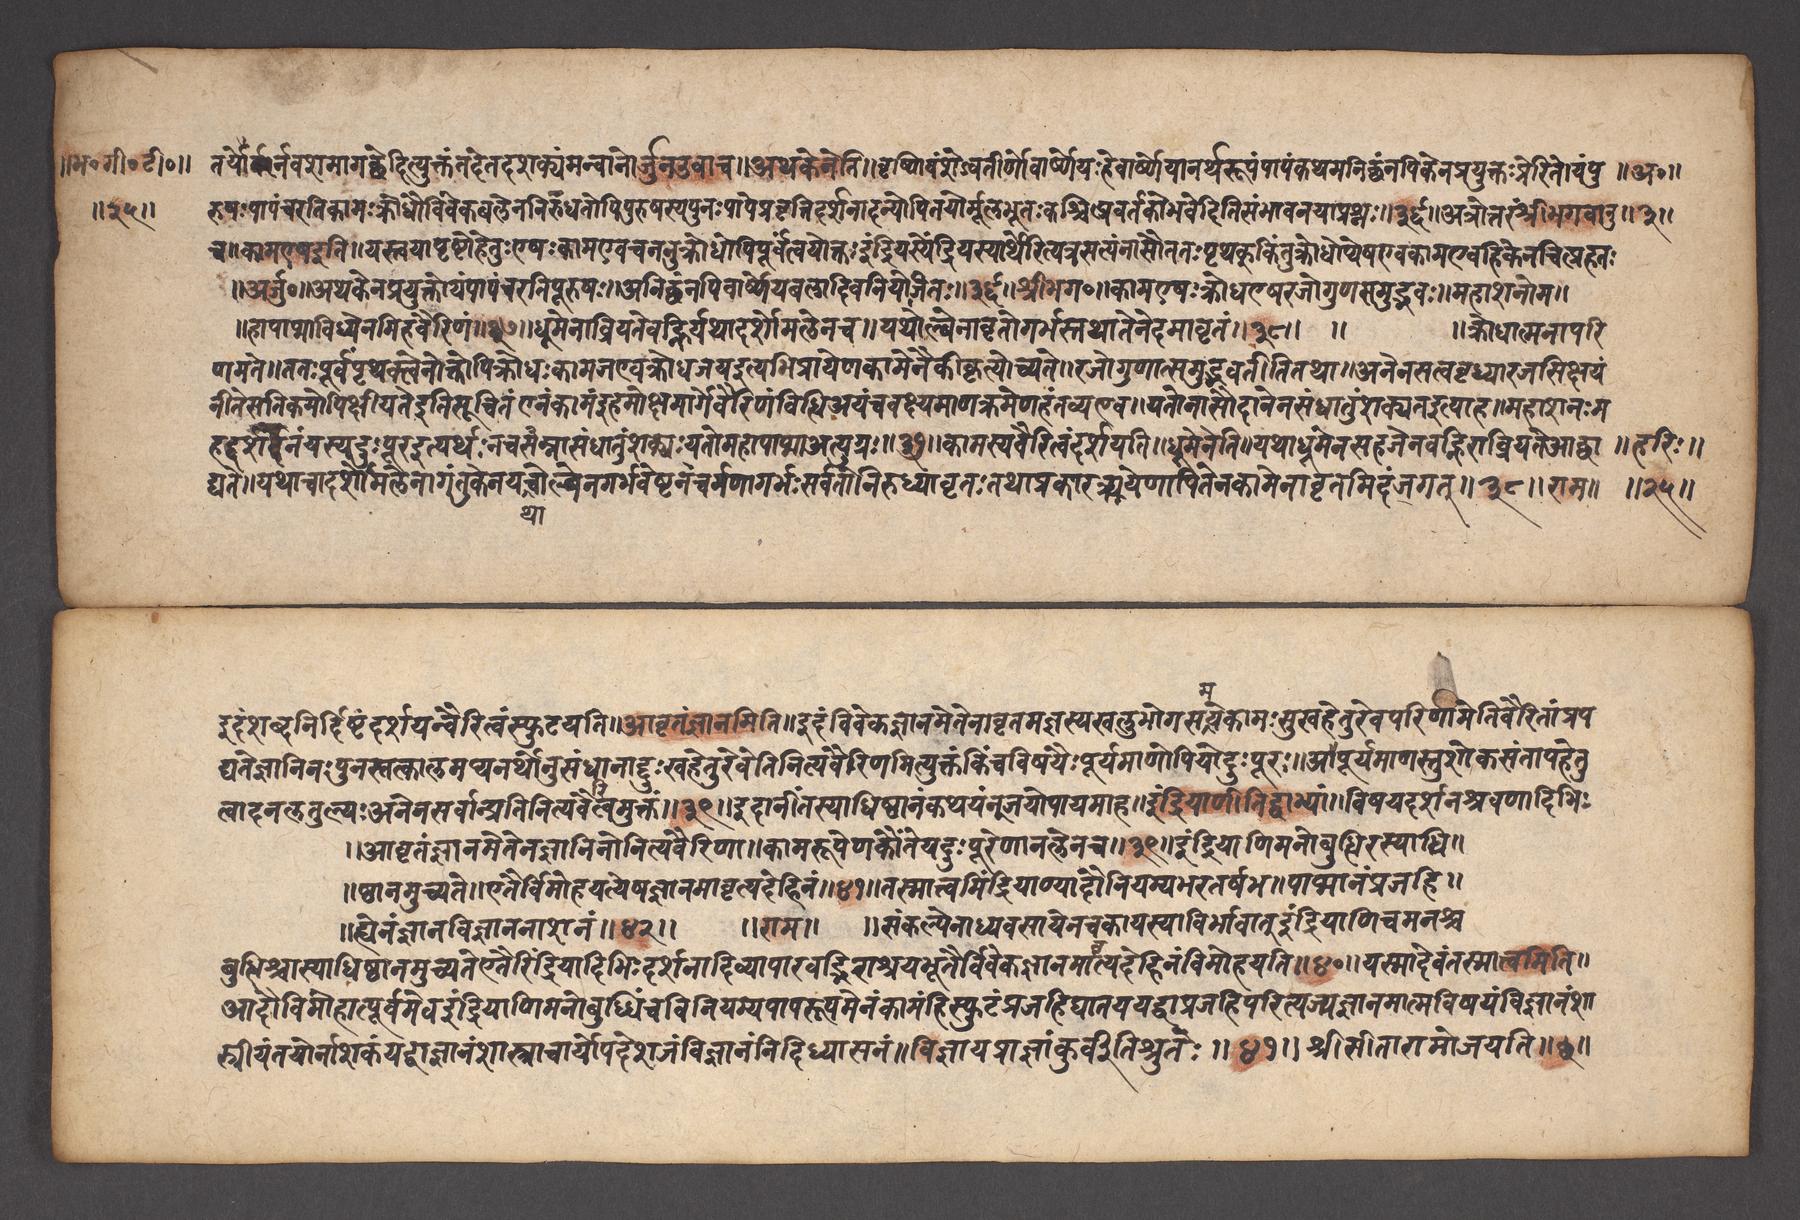 ॥भ०गी०टी०॥ तयोर्न वशमागच्छेदित्युक्तंतदेतदशक्यंमन्वानोर्जुनउवाच॥अथकेनेति॥वृष्णिवंशेऽवतीर्णोवार्ष्णेयःहेवार्ष्णेयानर्थरूपंपापंकथमनिछंनपिकेनप्रयुक्तःप्रेरितोयंपु ॥अ०॥
॥२५॥ रुषःपापंचरतिकामःक्रोधौविवेकबलेननिरुंधतोपिपुरुषस्यपुनःपापेप्रवृत्तिदर्शनादन्योपितयोर्मूलभूतःकश्चित्प्रवर्तकोभवेदितिसंभावनयाप्रश्नः॥३६॥अत्रोत्तरंश्रीभगवानु॥३॥
वाच॥कामएषइति॥यस्त्वयापृष्टोहेतुःएषःकामएवचननुक्रोधोपिपूर्वंत्वयोक्तःइंद्रियस्येंद्रियस्यार्थेरित्यत्रसत्यंनासौततःपृथक्किंतुक्रोधोप्येषएवकामएवहिकेनचित्प्रहतः
॥अर्जु०॥अथकेनप्रयुक्तोयंपापंचरतिपूरुषः॥अनिछंनपिवार्ष्णेयबलादिवनियोजितः॥३६॥श्रीभग०॥कामएषःक्रोधएषरजोगुणसमुद्भवः॥महाशनोम॥
॥हापाप्माविध्येनमिहवैरिणं॥३७॥धूमेनाव्रियतेवह्निर्यथादर्शोमलेनच॥यथोल्बेनावृतोगर्भस्तथातेनेदमावृतं॥३८॥ ॥ ॥क्रोधात्मनापरि
णमते॥ततःपूर्वंपृथक्त्वेनोक्तोपिक्रोधःकामजएवक्रोधजयइत्यभिप्रायेणकामेनैकीकृत्योच्यते॥रजोगुणात्समुद्भवतीतितथा॥अनेनसत्ववृध्यारजसिक्षयं
नीतेसतिकमोपिक्षीयतेइतिसूचितंएनंकामंइहमोक्षमार्गेवैरिणंविधिअयंचवक्ष्यमाणक्रमेणहंतव्यएव॥यतोनासौदानेनसंधातुंशक्यतइत्याह॥महाशनःम
हदशनंयस्यदुःपूरइत्यर्थःनचसाम्नासंधातुंशक्यःयतोमहापाप्माअत्युग्रः॥३७॥कामस्यवैरित्वंदर्शयति॥धूमेनेति॥यथाधूमेनसहजेनवह्निराव्रियतेआछा ॥हरिः॥
द्यते॥यथाचादर्शोमलेनागंतुकेनयथोल्बेनगर्भवेष्टनचर्मणागर्भःसर्वतोनिरुध्यावृतःतथाप्रकारत्रयेणापितेनकामेनावृतमिदंजगत्॥३८॥राम॥ ॥२५॥
था
म्
इदंशब्दनिर्दिष्टंदर्शयन्वैरित्वंस्फुटयति॥आवृतंज्ञानमिति॥इदंविवेकज्ञानमेतेनावृतमज्ञस्यखलुभोगसमयेकामःसुखहेतुरेवपरिणामेतिवैरितांप्रप
द्यतेज्ञानिनःपुनस्तत्कालमप्यनर्थानुसंधानाद्दुःखहेतुरेवेतिनित्यवैरिणमित्युक्तंकिंचविषयैःपूर्यमाणोपियोदुःपूरः॥आपूर्यमाणस्तुशोकसंतापहेतु
त्वादनलतुल्यःअनेनसर्वान्प्रतिनित्यवैरित्वमुक्तं॥३९॥इदानींतस्याधिष्ठानंकथयंन्जयोपायमाह॥इंद्रियाणीतिद्वाभ्यां॥विषयदर्शनश्रवणादिभिः
॥आवृतंज्ञानमेतेनज्ञानिनोनित्यवैरिणा॥कामरूपेणकौंतेयदुःपूरेणानलेनच॥३९॥इंद्रियाणिमनोबुधिरस्याधि॥
॥ष्ठानमुच्यते॥एतैर्विमोहयत्येषज्ञानमावृत्यदेहिनं॥४१॥तस्मात्वमिंद्रियाण्यादौनियम्यभरतर्षभ॥पाप्मानंप्रजहि॥
॥ह्येनंज्ञानविज्ञाननाशनं॥४२॥ ॥राम॥ ॥संकल्पेनाध्यवसायेनचकायस्याविर्भावात्इंद्रियाणिचमनश्च
बुधिश्चास्याधिष्ठानमुच्यतेएतैरिंद्रियादिभिःदर्शनादिव्यापारवद्भिराश्रयभूतैर्विवेकज्ञानमावृत्यदेहिनंविमोहयति॥४०॥यस्मादेवंतस्मात्वमिति॥
आदौविमोहात्पूर्वमेवइंद्रियाणिमनोबुध्धिंचविनियम्यपापरूपमेनंकामंहिस्फुटंप्रजहिघातययद्वाप्रजहिपरित्यज्यज्ञानमात्मविषयंविज्ञानंशा
स्त्रीयंतयोर्नाशकंयद्वाज्ञानंशास्त्राचार्योपदेशजंविज्ञानंनिदिध्यासनं॥विज्ञायप्रज्ञांकुर्वीतेतिश्रुतेः॥४१॥श्रीसीतारामोजयति॥७॥